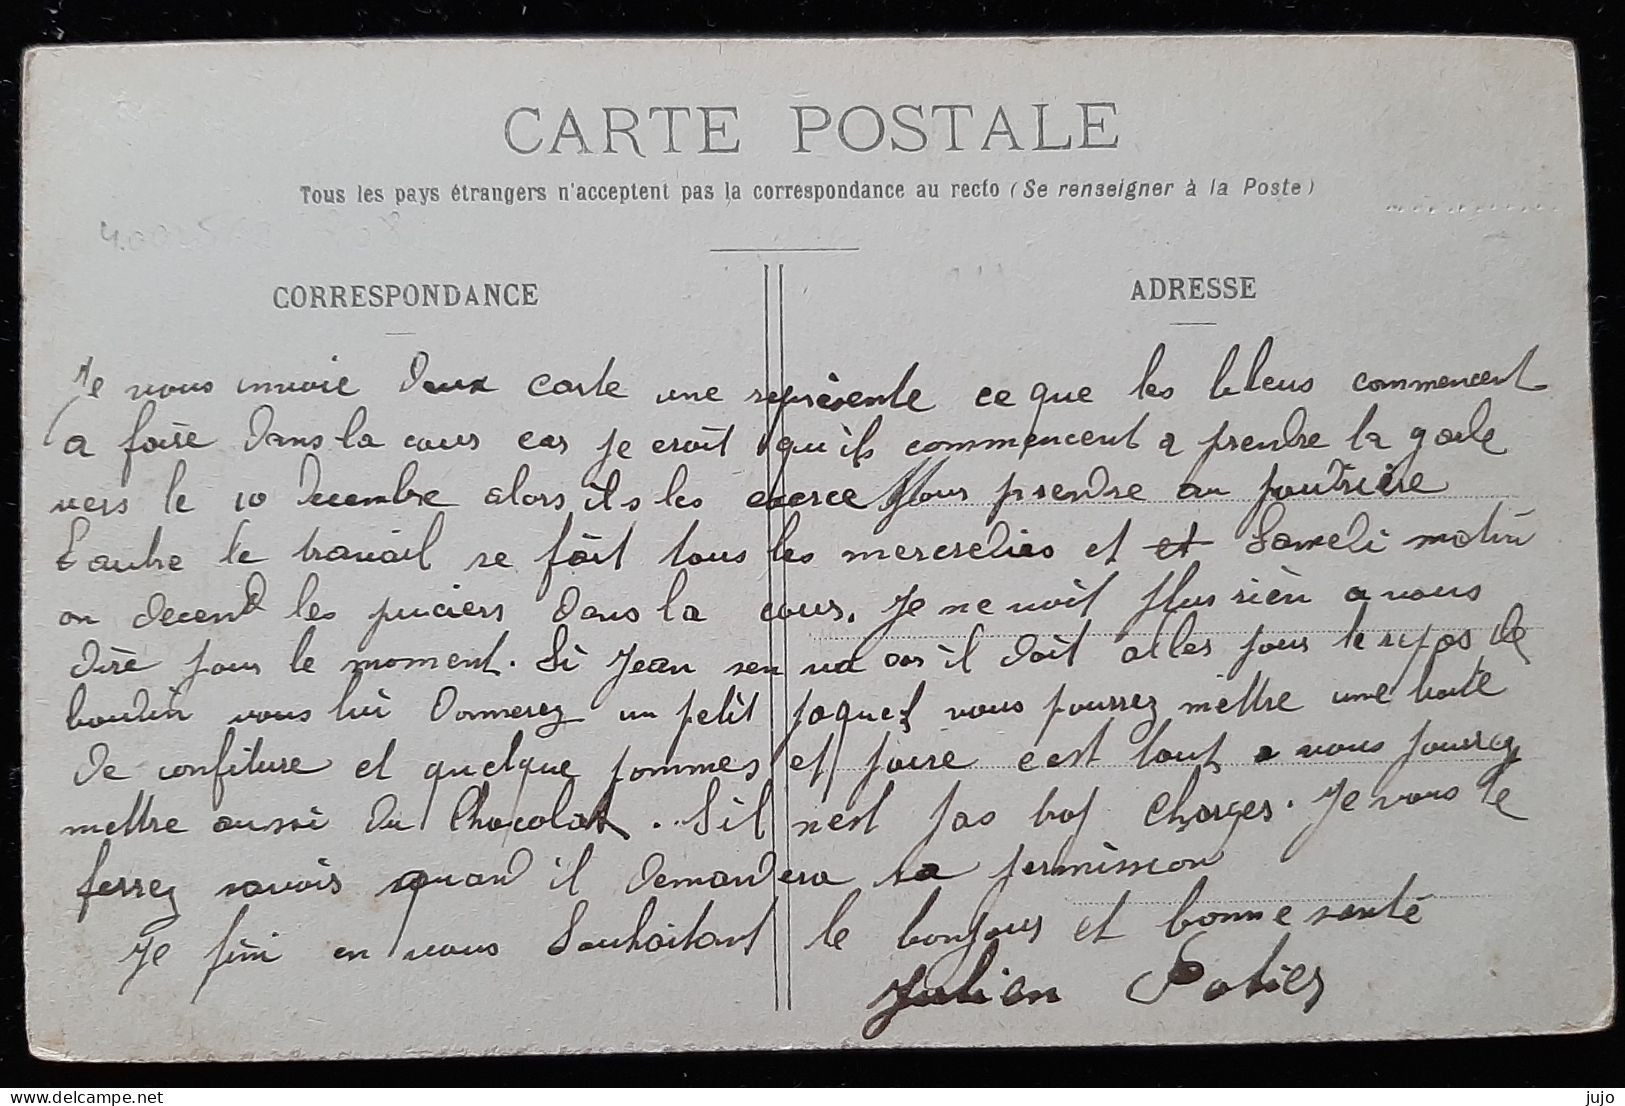 CARTE POSTALE
Tous les pays étrangers n'acceptent pas la correspondance au recto (Se renseigner à la Poste)
CORRESPONDANCE
ADRESSE
Je vous invoie deux carte une represente ce que les bleus commencent
a faire dans la cour car je croit qu'ils commencent a prendre la garde
vers le 10 decembre alors ils les exerce pour prendre au poudrière
L autre le travail se fait tous les mercredies et et Samedi matin
on decend les puciers dans la cour. Je ne voit plus rien a vous
dire pour le moment. Si Jean sen va car il doit aller pour le repos de
boudin vous lui donnerez un petit paquet vous pourrez mettre une boite
de confiture et quelque pommes et poire c est tout vous pourrez
mettre aussi du Chocolat. S'il n'est pas trop Charger. Je vous le
ferrez savoir quand il demandera sa permission
Je fini en vous Souhaitant le bonjour et bonne santé
Julien Potier
jujo